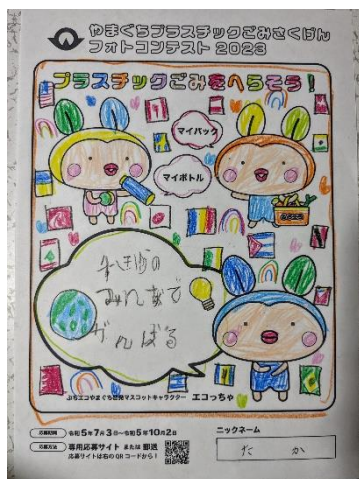 やまぐちプラスチックごみさくげん
フォトコンテスト 2023
プラスチックごみをへらそう!
マイバック
マイボトル
みんなで
がんばる
ぶちエコやまぐち社民マスコットキャラクター エコっちゃ
応募期間 令和5年7月3日~令和5年10月2日
応募方法 専用応募サイト または 郵送
応募サイトは右のQRコードから!
ニックネーム
たか